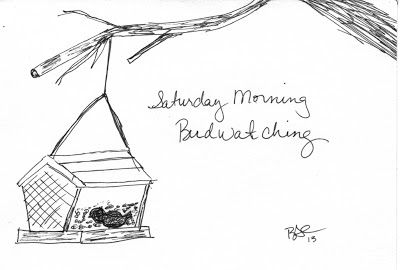 Saturday Morning
Birdwatching